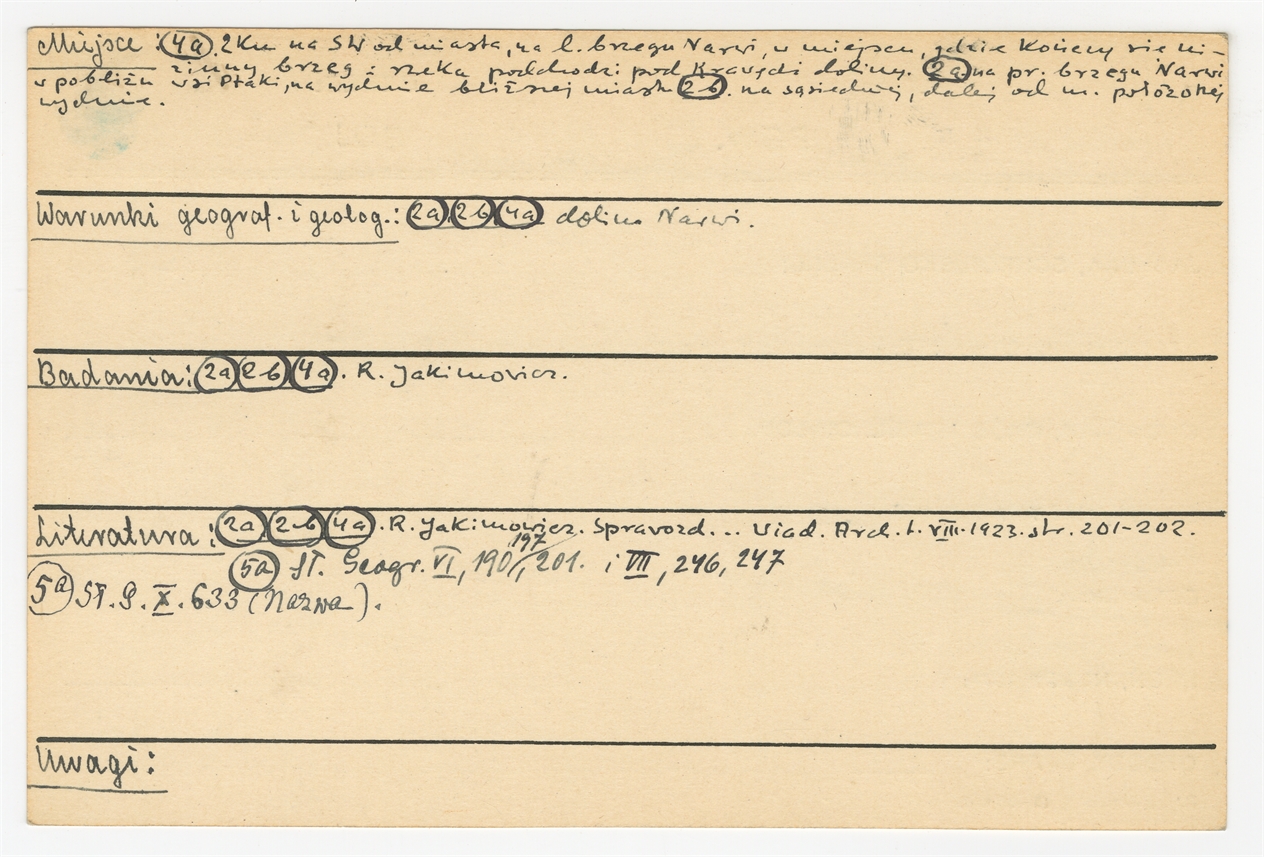 Miejsce: 4a. 2 Km na SW od miasta, na l. brzegu Narwi, w miejscu, gdzie kończy się ni-
zinny brzeg i rzeka podchodzi pod krawędź doliny. 2a na pr. brzegu Narwi
w pobliżu wsi Ptaki, na wydmie bliższej miasta 2b. na sąsiedniej, dalej od m. położonej
wydmie.
Warunki geograf. i geolog.: 2a 2b 4a dolina Narwi.
Badania: 2a 2b 4a. R. Jakimowicz.
Literatura: 2a 2b 4a. R. Jakimowicz. Sprawozd... Wiad. Arch. t. VIII. 1923. str. 201-202.
197
5a Sł. Geogr. VI, 190, 201. i VII, 246, 247
5a Sł. G. X. 633 (Nazwa).
Uwagi: